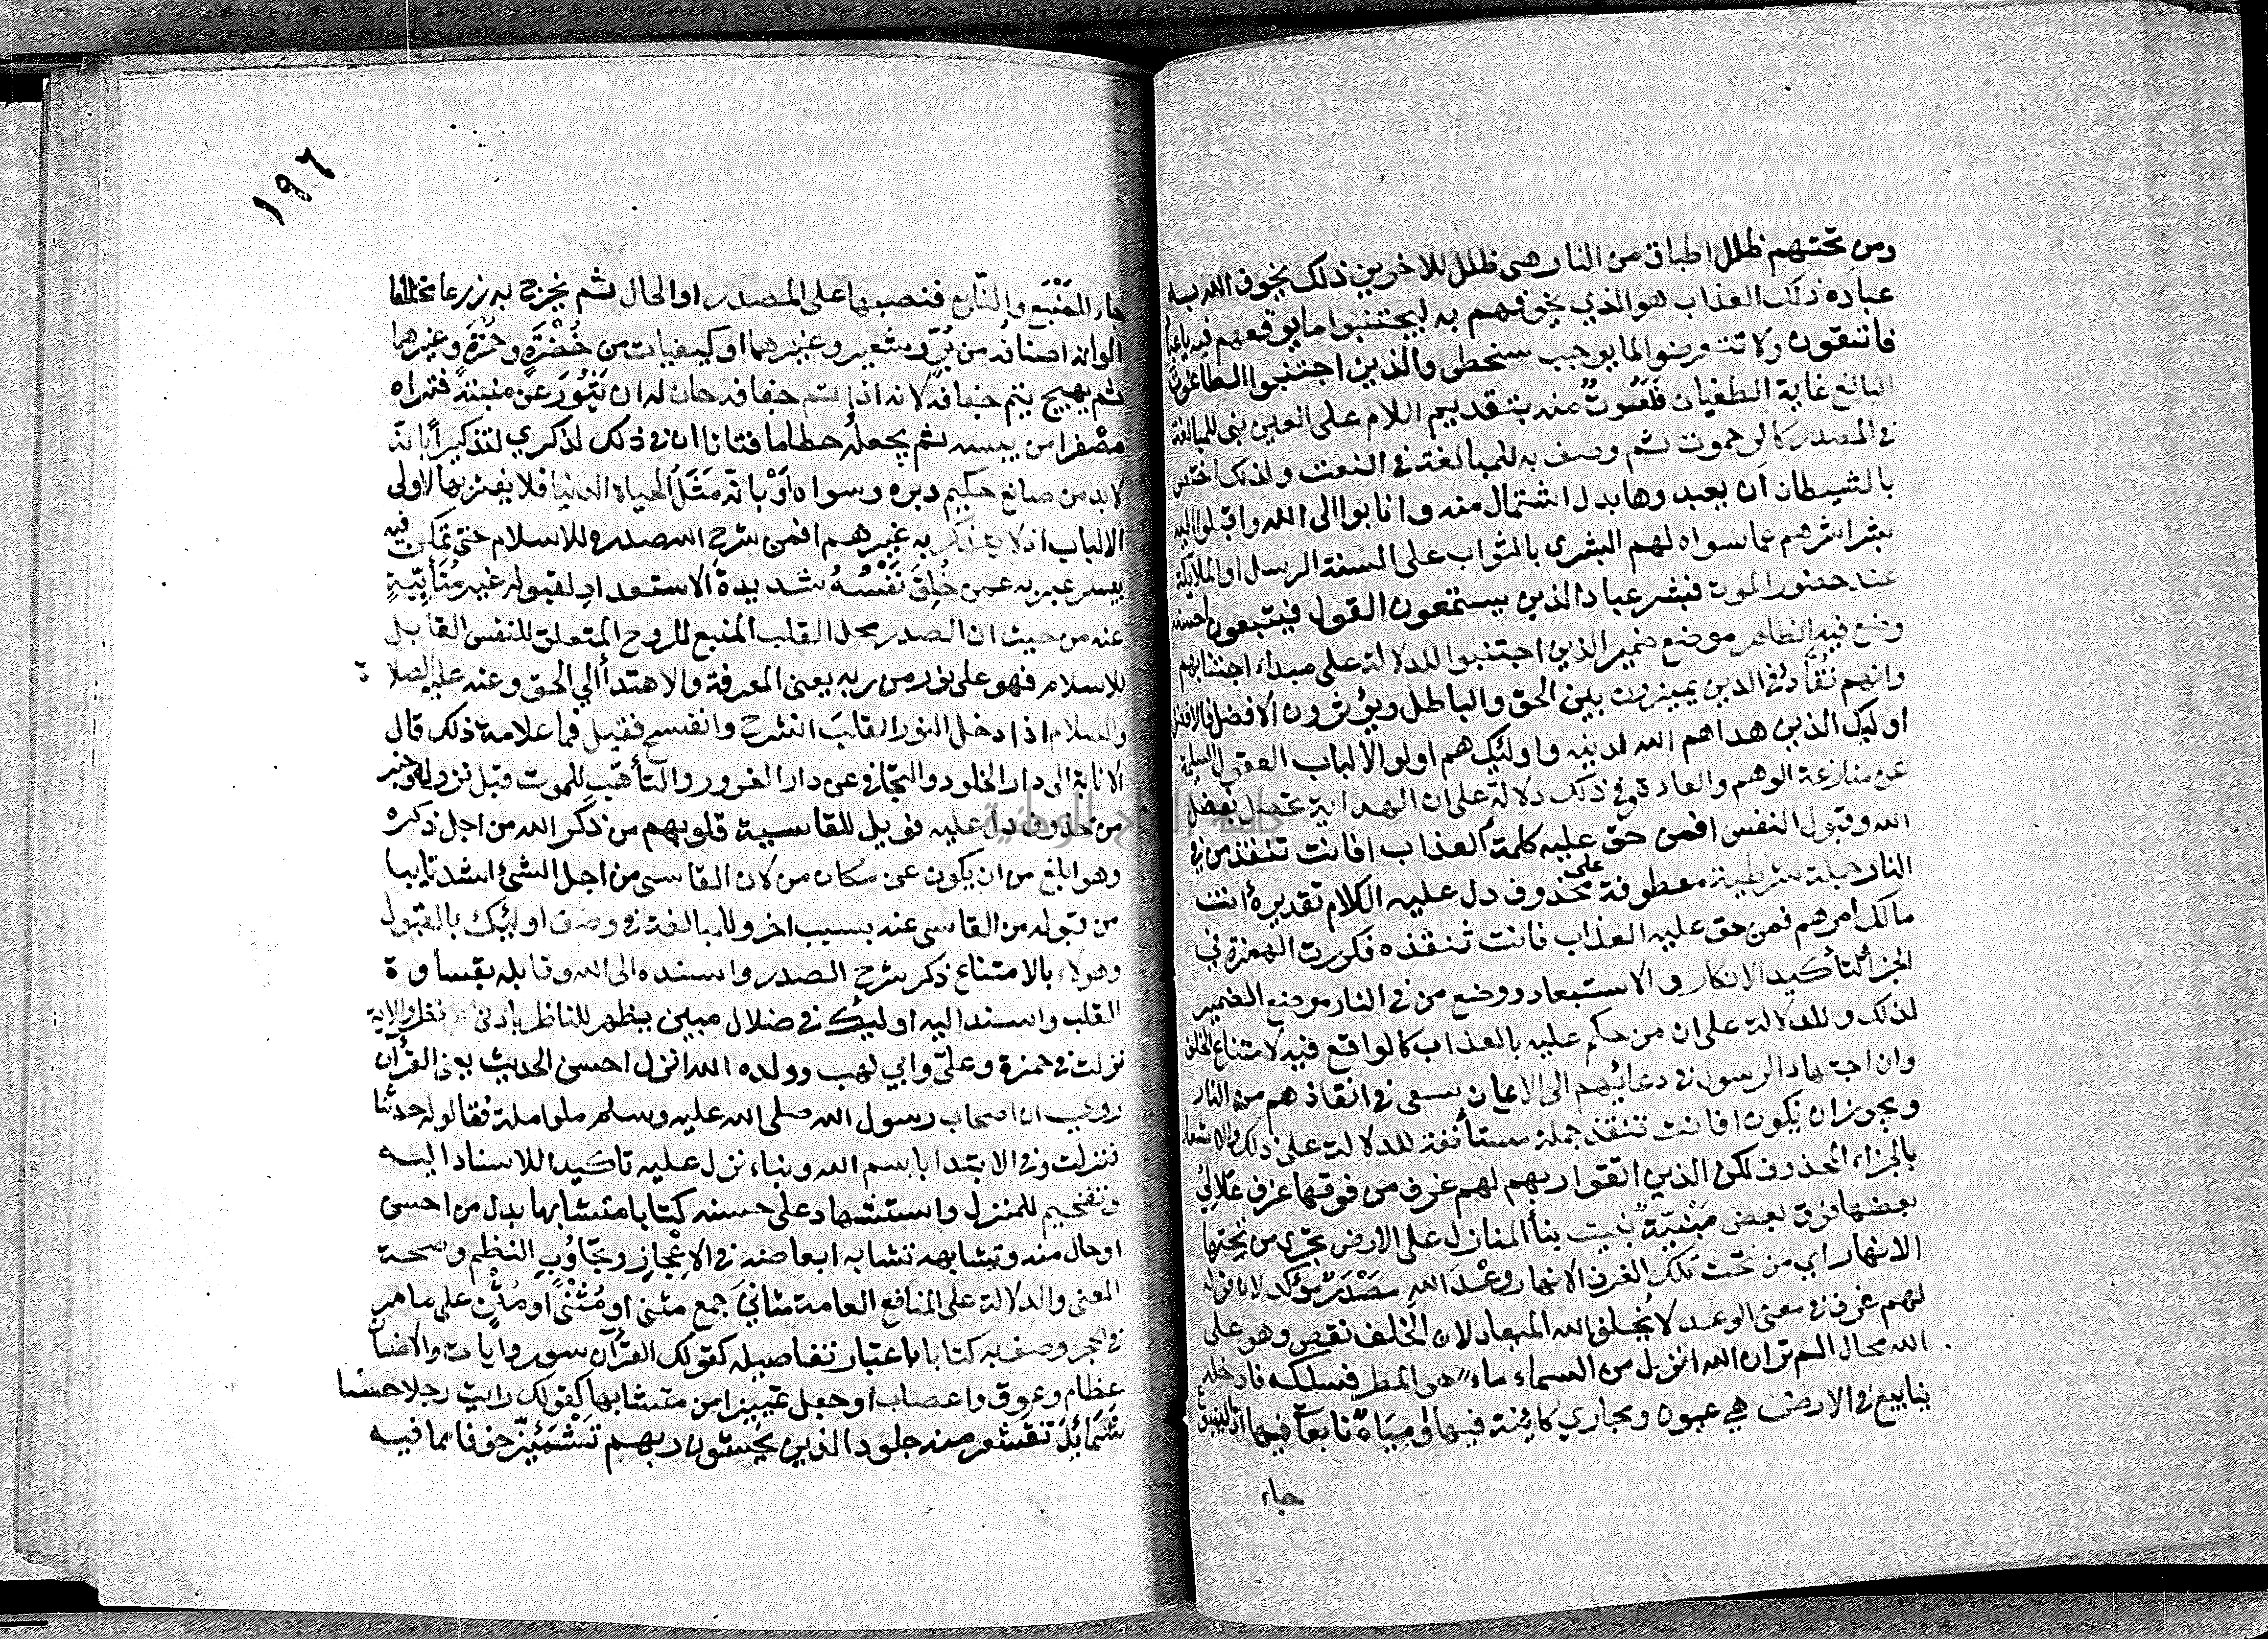 ومن تحتهم ظلل اطباق من النار هى ظلل للاخرين ذلك يخوف الله به
عباده ذلك العذاب هو الذي يخوفهم به ليجتنبوا ما يوقعهم فيه يا عباد
فاتقون ولا تتعرضوا لما يوجب سخطى والذين اجتنبوا الطاغوت
البالغ غاية الطغيان فَلَعُوتٌ منه بتقديم اللام على العين بنى للمبالغة
فى المصدر كالرحموت ثم وصف به للمبالغة فى النعت ولذلك اختص
بالشيطان ان يعبدوها بدل اشتمال منه وانابوا الى الله واقبلوا اليه
بشراشرهم عما سواه لهم البشرى بالثواب على السنة الرسل او الملايكة
عند حضور الموت فبشر عباد الذين يستمعون القول فيتبعون احسنه
وضع فيه الظاهر موضع ضمير الذين اجتنبوا للدلالة على مبداء اجتنابهم
وانهم نُقّادٌ فى الدين يميزون بين الحق والباطل ويؤثرون الافضل فالافضل
اوليك الذين هداهم الله لدينه واوليك هم اولوا الالباب العقول السليمة
عن منازعة الوهم والعادة وفى ذلك دلالة على ان الهداية تحصل بفضل
الله وقبول النفس افمن حق عليه كلمة العذاب افانت تنقذ من فى
النار جملة شرطية معطوفة على محذوف دل عليه الكلام تقديره أانت
مالك امرهم فمن حق عليه العذاب فانت تنقذه فكررت الهمزة فى
الجزا لتأكيد الانكار والاستبعاد ووضع من فى النار موضع الضمير
لذلك وللدلالة على ان من حكم عليه بالعذاب كالواقع فيه لامتناع الخلف
وان اجتهاد الرسول فى دعائهم الى الايمان سعى فى انقاذهم من النار
ويجوز ان يكون افانت تنقذ جملة مستأنفة للدلالة على ذلك والاشعار
بالجزاء المحذوف لكن الذين اتقوا ربهم لهم غرف من فوقها غرف علالى
بعضها فوق بعض مَبْنيّةٌ بنيت بنأ المنازل على الارض تجرى من تحتها
الانهار اي من تحت تلك الغرف الانهار وَعْدَ الله مَصْدَرٌ مؤكد لان قوله
لهم غرف فى معنى الوعد لا يخلف الله الميعاد لان الخلف نقص وهو على
الله محال الم تر ان الله انزل من السماء ماء هو المطر فسلكه فادخله
ينابيع فى الارض هي عيون ومجاري كاينة فيها او مِيَاهٌ نابعة فيها اذ الينبوع
جاء
١٩٦
جاء للمَنْبَع والنّابع فنصبها على المصدر او الحال ثم يخرج به زرعا مختلفا
الوانه اصنافه من بُرّ وشعير وغيرهما او كيفياته من خُضْرَةٍ وحُمْرَةٍ وغيرهما
ثم يهيج يتم جفافه لانه اذا تم جفافه حان له ان يَثُورَ عن منبته فتراه
مصْفرا من يبسه ثم يجعله حطاما فتاتا ان فى ذلك لذكري لتذكيراً بانّه
لابد من صانع حكيم دبره وسواه اَوْ بانّه مَثَلُ الحياة الدنيا فلا يغتر بها لاولى
الالباب اذ لا يتذكر به غيرهم افمن شرح الله صدره للاسلام حتى تمكن فيه
بيسر عبر به عمن خُلِقَ نَفْسُهُ شديدةَ الاستعداد لقبوله غير مُتأبّيةٍ
عنه من حيث ان الصدر محل القلب المنبع للروح المتعلق للنفس القابل
للاسلام فهو على نور من ربه يعنى المعرفة والاهتدأ الي الحق وعنه عليه الصلاة
والسلام اذا دخل النور القلبَ انشرح وانفسح فقيل فما علامة ذلك قال
الانابة الى دار الخلود والتجافى عن دار الغرور والتأهّب للموت قبل نزوله وخبر
من محذوف دل عليه فويل للقاسية قلوبهم من ذكر الله من اجل ذكره
وهو ابلغ من ان يكون عن مكان من لان القاسى من اجل الشئ اشد تابيا
من قبوله من القاسى عنه بسبب اخر وللمبالغة فى وصف اوليك بالقبول
وهولاء بالامتناع ذكر شرح الصدر واسنده الى الله وقابله بقساوة
القلب واسنده اليه اوليك فى ضلال مبين يظهر للناظر بادنى نظر والاية
نزلت فى حمزة وعلى وابي لهب وولده الله انزل احسن الحديث يعنى القرآن
روي ان اصحاب رسول الله صلى الله عليه وسلم ملوا ملة فقالوا له حدثنا
فنزلت وفى الابتدا باسم الله وبناء نزل عليه تاكيدا للاسناد اليه
وتفخيم للمنزل واستشهاد على حسنه كتابا متشابها بدل من احسن
او حال منه وتشابهه تشابه ابعاضه فى الاعْجازِ وتجاوُبِ النظم وصحة
المعنى والدلالة على المنافع العامة مثانيَ جمع مثنى او مُثْنًى او مُثْنٍ على ما مر
فى الحجر وصف به كتابا باعتبار تفاصيله كقولك القرآن سور وايات والانسان
عظام وعروق واعصاب او جعل تمييزا من متشابها كقولك رايت رجلا حسنا
شَمَائِلَ تقشعر منه جلود الذين يخشون ربهم تَشْمَئِزّ خوفا مما فيه